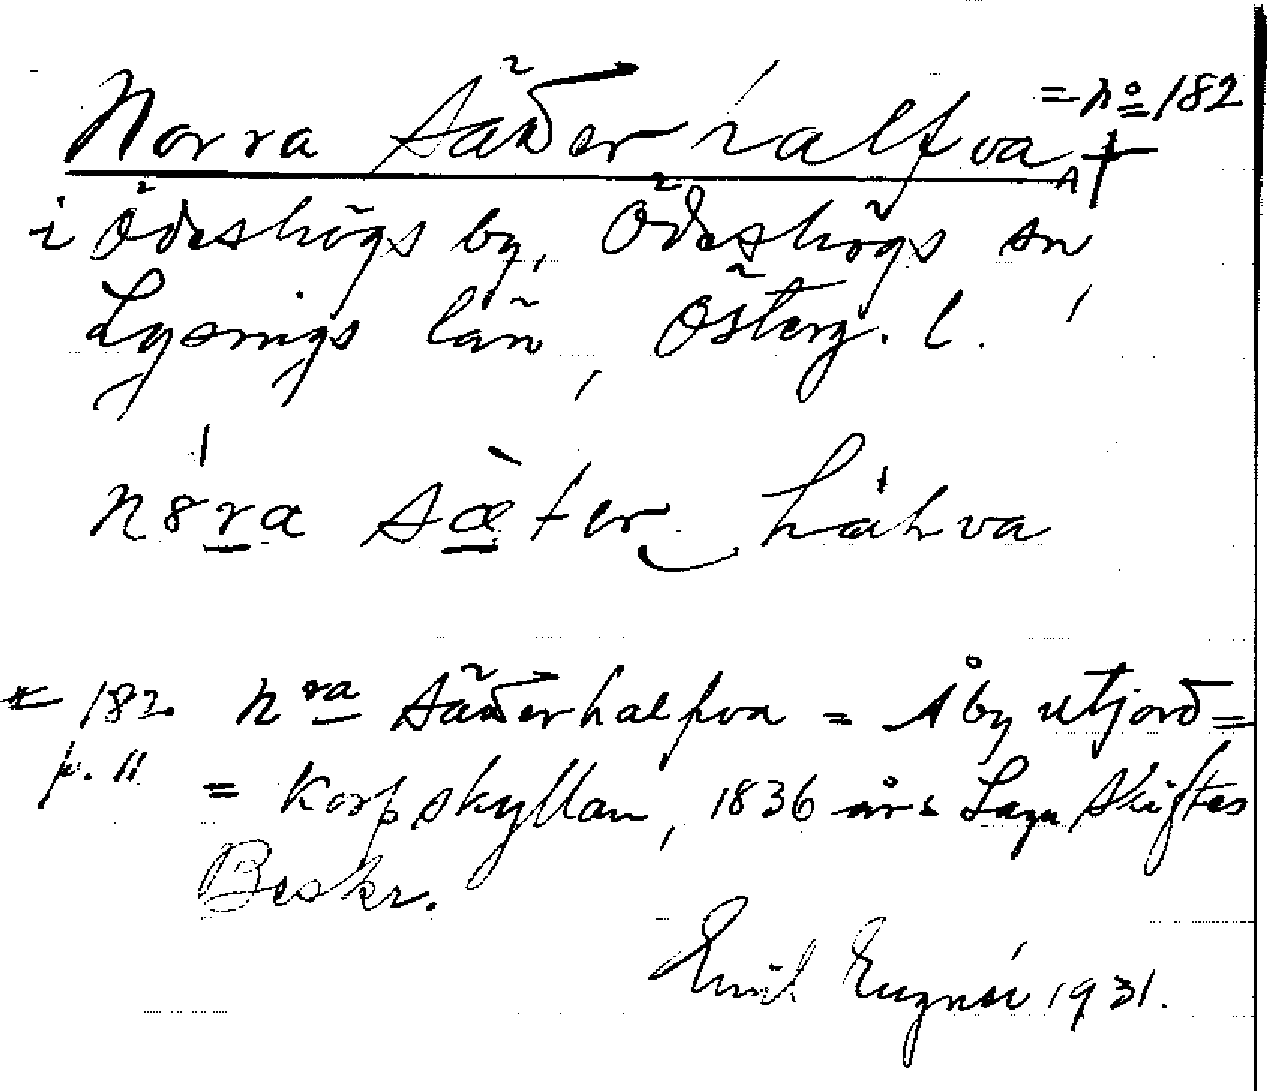 Norra Säterhalfva = No 182
i Ödeshögs by, Ödeshögs sn
Lysings län, Österg. l.
nöra sæter håhva
182. Nra Säterhalfva = Åby utjord =
p. 11 = Korpskyllan, 1836 års Laga Skiftes
Beskr.
Emil 1931.